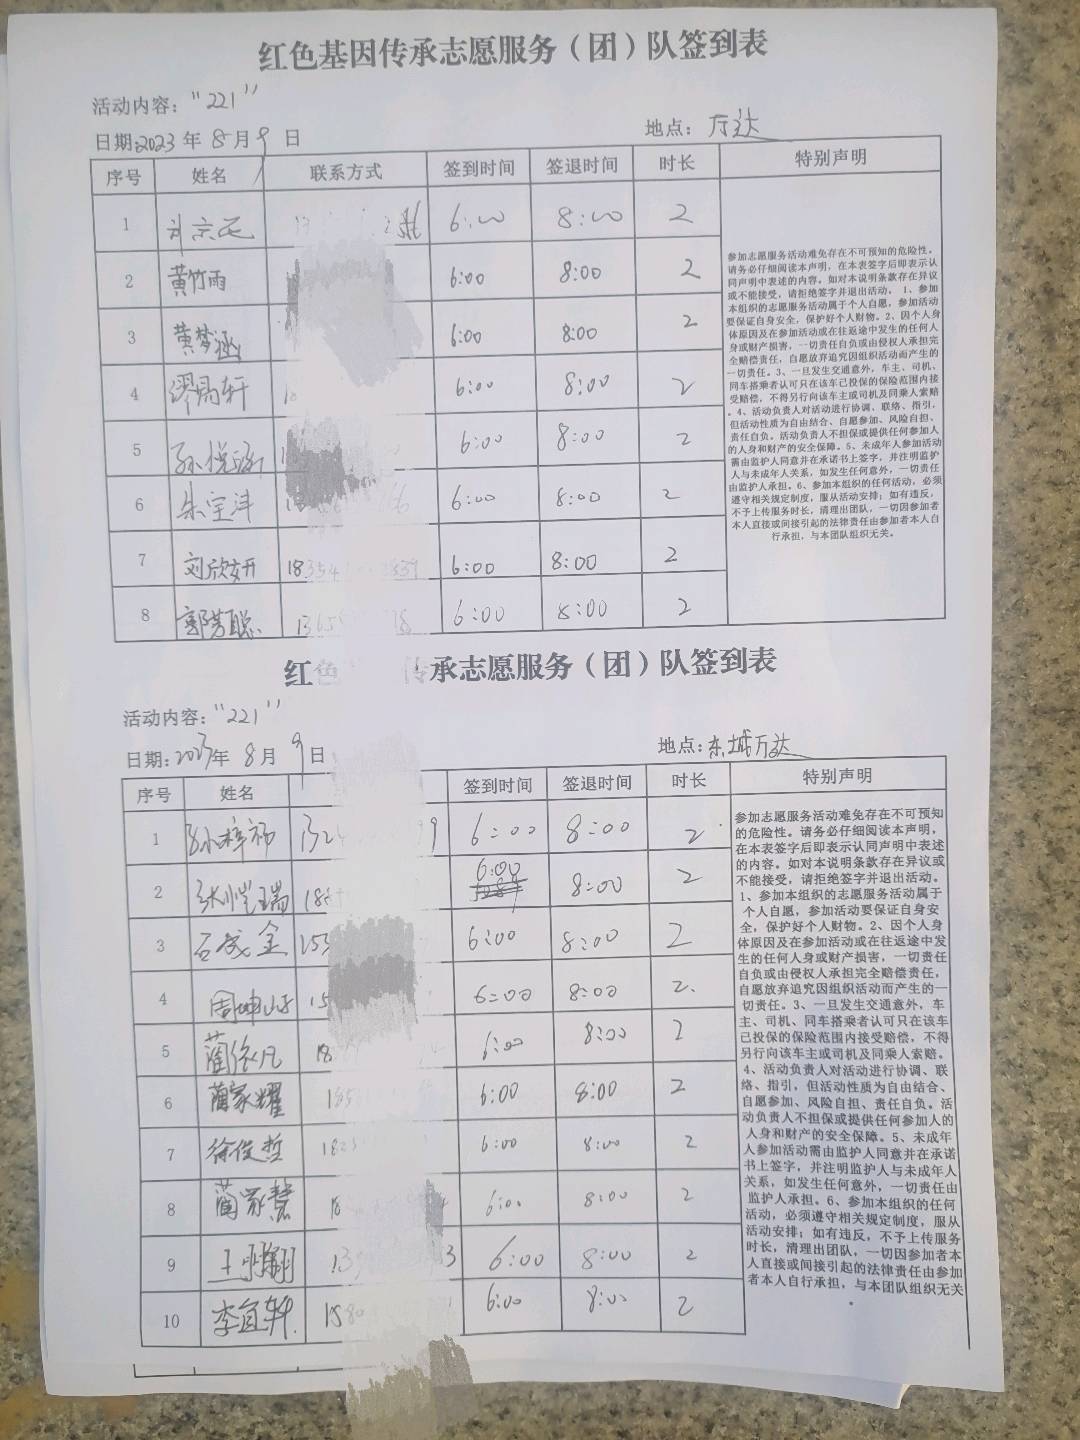 红色基因传承志愿服务（团）队签到表
活动内容：“221”
日期:2023 年 8 月 9 日
地点：万达
序号 姓名 联系方式 签到时间 签退时间 时长 特别声明
1 6:00 8:00 2
2 黄竹雨 6:00 8:00 2
3 黄梦涵 6:00 8:00 2
4 缪禹轩 6:00 8:00 2
5 孙悦 6:00 8:00 2
6 朱宝沣 6:00 8:00 2
7 刘欣妍 18354 6:00 8:00 2
8 郭芳聪 1365 6:00 8:00 2
参加志愿服务活动难免存在不可预知的危险性。
请务必仔细阅读本声明，在本表签字后即表示认
同声明中表述的内容。如对本说明条款存在异议
或不能接受，请拒绝签字并退出活动。 1、参加
本组织的志愿服务活动属于个人自愿，参加活动
要保证自身安全，保护好个人财物。2、因个人身
体原因及在参加活动或在往返途中发生的任何人
身或财产损害，一切责任自负或由侵权人承担完
全赔偿责任，自愿放弃追究因组织活动而产生的
一切责任。3、一旦发生交通意外，车主、司机、
同车搭乘者认可只在该车已投保的保险范围内接
受赔偿，不得另行向该车主或司机及同乘人索赔
。4、活动负责人对活动进行协调、联络、指引，
但活动性质为自由结合、自愿参加、风险自担、
责任自负。活动负责人不担保或提供任何参加人
的人身和财产的安全保障。5、未成年人参加活动
需由监护人同意并在承诺书上签字，并注明监护人
与未成年人关系，如发生任何意外，一切责任
由监护人承担。6、参加本组织的任何活动，必须
遵守相关规定制度，服从活动安排；如有违反，
不予上传服务时长，清理出团队，一切因参加者
本人直接或间接引起的法律责任由参加者本人自
行承担，与本团队组织无关。
红色 传承志愿服务（团）队签到表
活动内容：“221”
日期:2023年 8 月 9 日
地点：东城万达
序号 姓名 签到时间 签退时间 时长 特别声明
1 孙梓 132 6:00 8:00 2
2 张恺瑞 6:00 8:00 2
3 石成金 153 6:00 8:00 2
4 周坤 15 6:00 8:00 2
5 蔺依凡 18 6:00 8:00 2
6 蔺家耀 185 6:00 8:00 2
7 徐俊哲 6:00 8:00 2
8 蔺家慧 6:00 8:00 2
9 王翱翔 13 3 6:00 8:00 2
10 李宜轩 6:00 8:00 2
参加志愿服务活动难免存在不可预知
的危险性。请务必仔细阅读本声明，
在本表签字后即表示认同声明中表述
的内容。如对本说明条款存在异议或
不能接受，请拒绝签字并退出活动。
1、参加本组织的志愿服务活动属于
个人自愿，参加活动要保证自身安
全，保护好个人财物。2、因个人身
体原因及在参加活动或在往返途中发
生的任何人身或财产损害，一切责任
自负或由侵权人承担完全赔偿责任，
自愿放弃追究因组织活动而产生的一
切责任。3、一旦发生交通意外，车
主、司机、同车搭乘者认可只在该车
已投保的保险范围内接受赔偿，不得
另行向该车主或司机及同乘人索赔。
4、活动负责人对活动进行协调、联
络、指引，但活动性质为自由结合、
自愿参加、风险自担、责任自负。活
动负责人不担保或提供任何参加人的
人身和财产的安全保障。5、未成年
人参加活动需由监护人同意并在承诺
书上签字，并注明监护人与未成年人
关系，如发生任何意外，一切责任由
监护人承担。6、参加本组织的任何
活动，必须遵守相关规定制度，服从
活动安排；如有违反，不予上传服务
时长，清理出团队，一切因参加者本
人直接或间接引起的法律责任由参加
者本人自行承担，与本团队组织无关